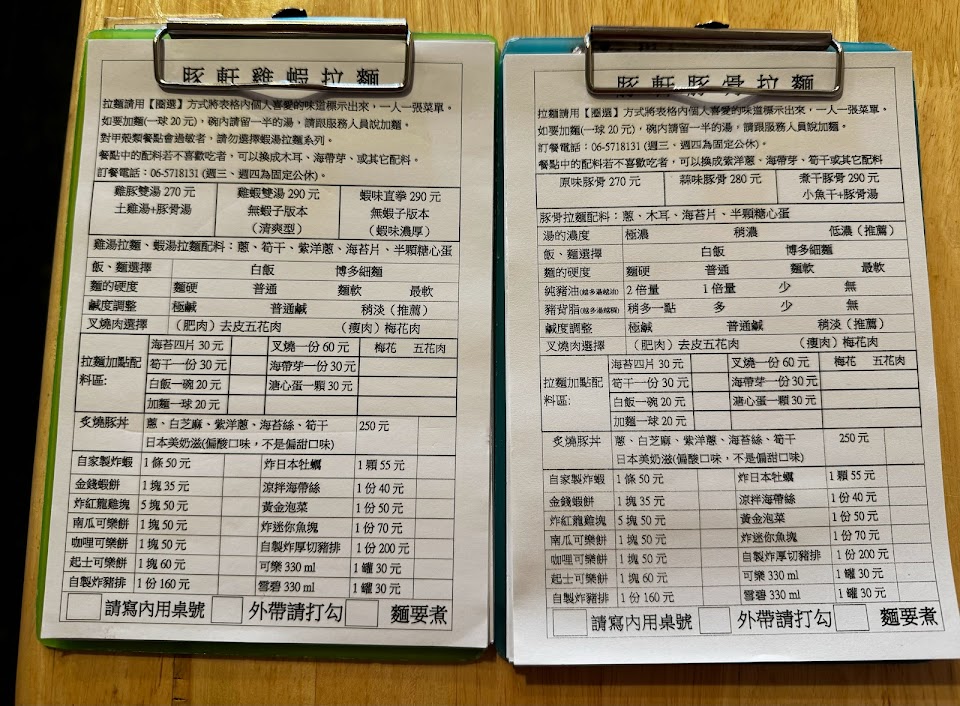 豚軒雞蝦拉麵
拉麵請用【圈選】方式將表格內個人喜愛的味道標示出來，一人一張菜單。
如要加麵(一球 20 元)，碗內請留一半的湯，請跟服務人員說加麵。
對甲殼類餐點會過敏者，請勿選擇蝦湯拉麵系列。
餐點中的配料若不喜歡吃者，可以換成木耳、海帶芽、或其它配料。
訂餐電話：06-5718131 (週三、週四為固定公休)。
雞豚雙湯 270 元 雞蝦雙湯 290 元 蝦味直拳 290 元
土雞湯+豚骨湯 無蝦子版本 無蝦子版本
(清爽型) (蝦味濃厚)
雞湯拉麵、蝦湯拉麵配料：蔥、筍干、紫洋蔥、海苔片、半顆糖心蛋
飯、麵選擇 白飯 博多細麵
麵的硬度 麵硬 普通 麵軟 最軟
鹹度調整 極鹹 普通鹹 稍淡（推薦）
叉燒肉選擇 （肥肉）去皮五花肉 （瘦肉）梅花肉
拉麵加點配料區:
海苔四片 30 元 叉燒一份 60 元 梅花 五花肉
筍干一份 30 元 海帶芽一份 30 元
白飯一碗 20 元 溏心蛋一顆 30 元
加麵一球 20 元
炙燒豚丼 蔥、白芝麻、紫洋蔥、海苔絲、筍干 250 元
日本美奶滋(偏酸口味，不是偏甜口味)
自家製炸蝦 1 條 50 元 炸日本牡蠣 1 顆 55 元
金錢蝦餅 1 塊 35 元 涼拌海帶絲 1 份 40 元
炸紅龍雞塊 5 塊 50 元 黃金泡菜 1 份 50 元
南瓜可樂餅 1 塊 50 元 炸迷你魚塊 1 份 70 元
咖哩可樂餅 1 塊 50 元 自製炸厚切豬排 1 份 200 元
起士可樂餅 1 塊 60 元 可樂 330 ml 1 罐 30 元
自製炸豬排 1 份 160 元 雪碧 330 ml 1 罐 30 元
請寫內用桌號 外帶請打勾 麵要煮
豚軒豚骨拉麵
拉麵請用【圈選】方式將表格內個人喜愛的味道標示出來，一人一張菜單。
如要加麵(一球 20 元)，碗內請留一半的湯，請跟服務人員說加麵。
訂餐電話：06-5718131 (週三、週四為固定公休)。
餐點中的配料若不喜歡吃者，可以換成紫洋蔥、海帶芽、筍干或其它配料
原味豚骨 270 元 蒜味豚骨 280 元 煮干豚骨 290 元
小魚干+豚骨湯
豚骨拉麵配料：蔥、木耳、海苔片、半顆糖心蛋
湯的濃度 極濃 稍濃 低濃（推薦）
飯、麵選擇 白飯 博多細麵
麵的硬度 麵硬 普通 麵軟 最軟
純豬油(越多湯越油) 2 倍量 1 倍量 少 無
豬背脂(越多湯越稠) 稍多一點 多 少 無
鹹度調整 極鹹 普通鹹 稍淡（推薦）
叉燒肉選擇 （肥肉）去皮五花肉 （瘦肉）梅花肉
拉麵加點配料區:
海苔四片 30 元 叉燒一份 60 元 梅花 五花肉
筍干一份 30 元 海帶芽一份 30 元
白飯一碗 20 元 溏心蛋一顆 30 元
加麵一球 20 元
炙燒豚丼 蔥、白芝麻、紫洋蔥、海苔絲、筍干 250 元
日本美奶滋(偏酸口味，不是偏甜口味)
自家製炸蝦 1 條 50 元 炸日本牡蠣 1 顆 55 元
金錢蝦餅 1 塊 35 元 涼拌海帶絲 1 份 40 元
炸紅龍雞塊 5 塊 50 元 黃金泡菜 1 份 50 元
南瓜可樂餅 1 塊 50 元 炸迷你魚塊 1 份 70 元
咖哩可樂餅 1 塊 50 元 自製炸厚切豬排 1 份 200 元
起士可樂餅 1 塊 60 元 可樂 330 ml 1 罐 30 元
自製炸豬排 1 份 160 元 雪碧 330 ml 1 罐 30 元
請寫內用桌號 外帶請打勾 麵要煮